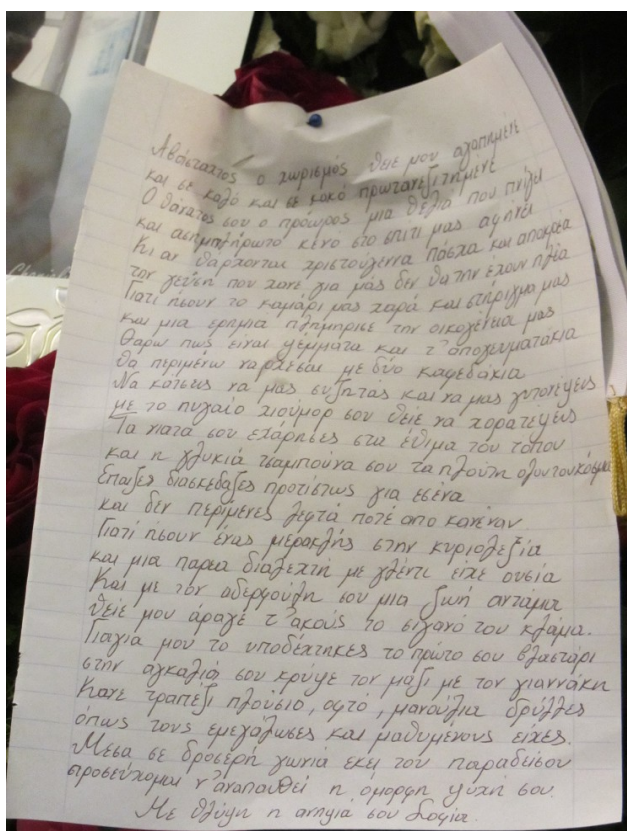 Αβάσταχτος ο χωρισμός θείε μου αγαπημένε
και σε καλό και σε κακό πρωτανεξιτημενε
Ο θάνατος σου ο πρόωρος μια θελιά που πνίγει
και ασημπλήρωτο κενό στο σπίτι μας αφήνει
Κι αν θάρχονται χριστούγεννα πάσχα και αποκρέα
την γεύση που χανε για μάς δεν θα την έχουν πλέα
Γιατί ήσουν το καμάρι μας χαρά και στήριγμα μας
και μια ερημιά πλημμήρισε την οικογένεια μας
Θαρώ πως είναι ψέμματα και τ' απογευματάκια
θα περιμένω ναρχεσαι με δύο καφεδάκια
Να κάτσεις να μας συζητάς και να μας
με το πηγαίο χιούμορ σου θείε να χορατεψεις
Τα νιατά σου εχάρησες στα έθιμα του τόπου
και η γλυκιά τσαμπούνα σου τα πλούτη
Επαιξες διασκεδαξες προτίστως για εσένα
και δεν περίμενες λεφτά ποτέ απο κανέναν
Γιατί ήσουν ένας μερακλής στην κυριολεξία
και μια παρέα διαλεχτή με γλέντι είχε ουσία
Και με τον αδερφούλη σου μια ζωή αντάμα
θείε μου άραγε τ' ακούς το σιγανό του κλάμα.
Γιαγιά μου το υποδέχτηκες το πρώτο σου βλαστάρι
στην αγκαλιά σου κρύψε τον μαζί με τον γιαννάκη
Κανε τραπέζι πλούσιο, οφτό, μανούλια δρύλλες
όπως τους εμεγάλωσες και μαθημένους είχες.
Μέσα σε δροσερή γωνιά εκεί του παραδείσου
προσεύχομαι ν' αναπαυθεί η όμορφη ψύχη σου.
Με θλίψη η ανηψιά σου Σοφία.